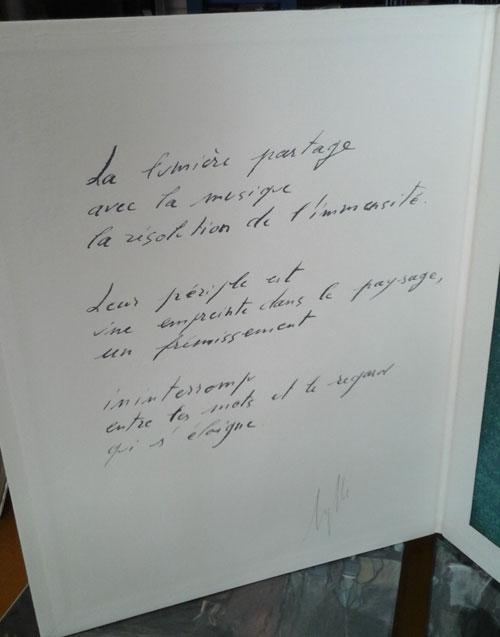 La lumière partage
avec la musique
la résolution de l'immensité.
Leur périple est
une empreinte dans le paysage,
un frémissement
ininterrompu
entre les mots et le regard
qui s'éloigne.